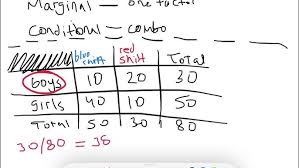 Marginal - one factor
Conditional = combo
blue shirt red shift Total
boys 10 20 30
girls 40 10 50
Total 50 30 80
30/80 = 38